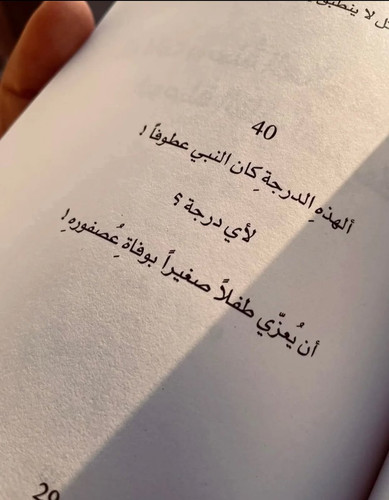 كل لا ينطبق
40
ألهذهِ الدرجة كان النبي عطوفاً !
لأي درجة ؟
أن يُعزّي طفلاً صغيراً بوفاةِ عُصفورهِ !
29